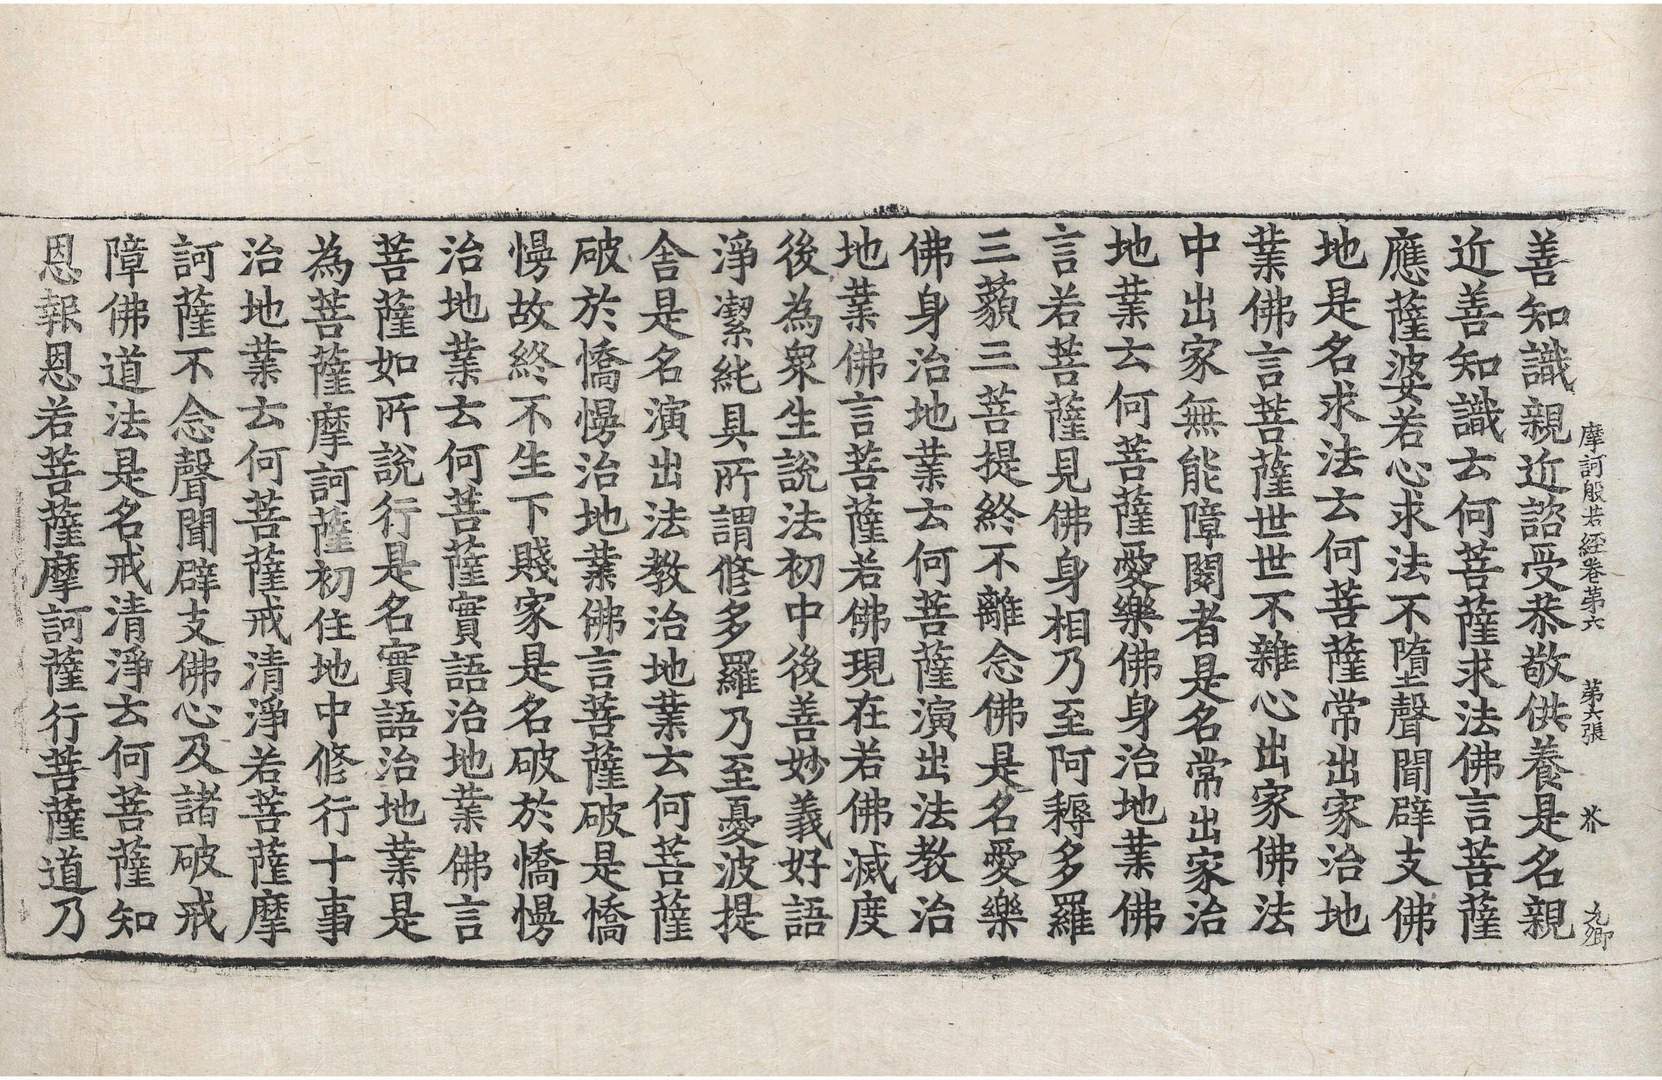 摩訶般若經卷第六 第六張 芥
善知識親近諮受恭敬供養是名親
近善知識云何菩薩求法佛言菩薩
應薩婆若心求法不墮聲聞辟支佛
地是名求法云何菩薩常出家治地
業佛言菩薩世世不雜心出家佛法
中出家無能障閡者是名常出家治
地業云何菩薩愛樂佛身治地業佛
言若菩薩見佛身相乃至阿耨多羅
三藐三菩提終不離念佛是名愛樂
佛身治地業云何菩薩演出法教治
地業佛言菩薩若佛現在若佛滅度
後為衆生說法初中後善妙義好語
淨潔純具所謂修多羅乃至憂波提
舍是名演出法教治地業云何菩薩
破於憍慢治地業佛言菩薩破是憍
慢故終不生下賤家是名破於憍慢
治地業云何菩薩實語治地業佛言
菩薩如所說行是名實語治地業是
為菩薩摩訶薩初住地中修行十事
治地業云何菩薩戒清淨若菩薩摩
訶薩不念聲聞辟支佛心及諸破戒
障佛道法是名戒清淨云何菩薩知
恩報恩若菩薩摩訶薩行菩薩道乃